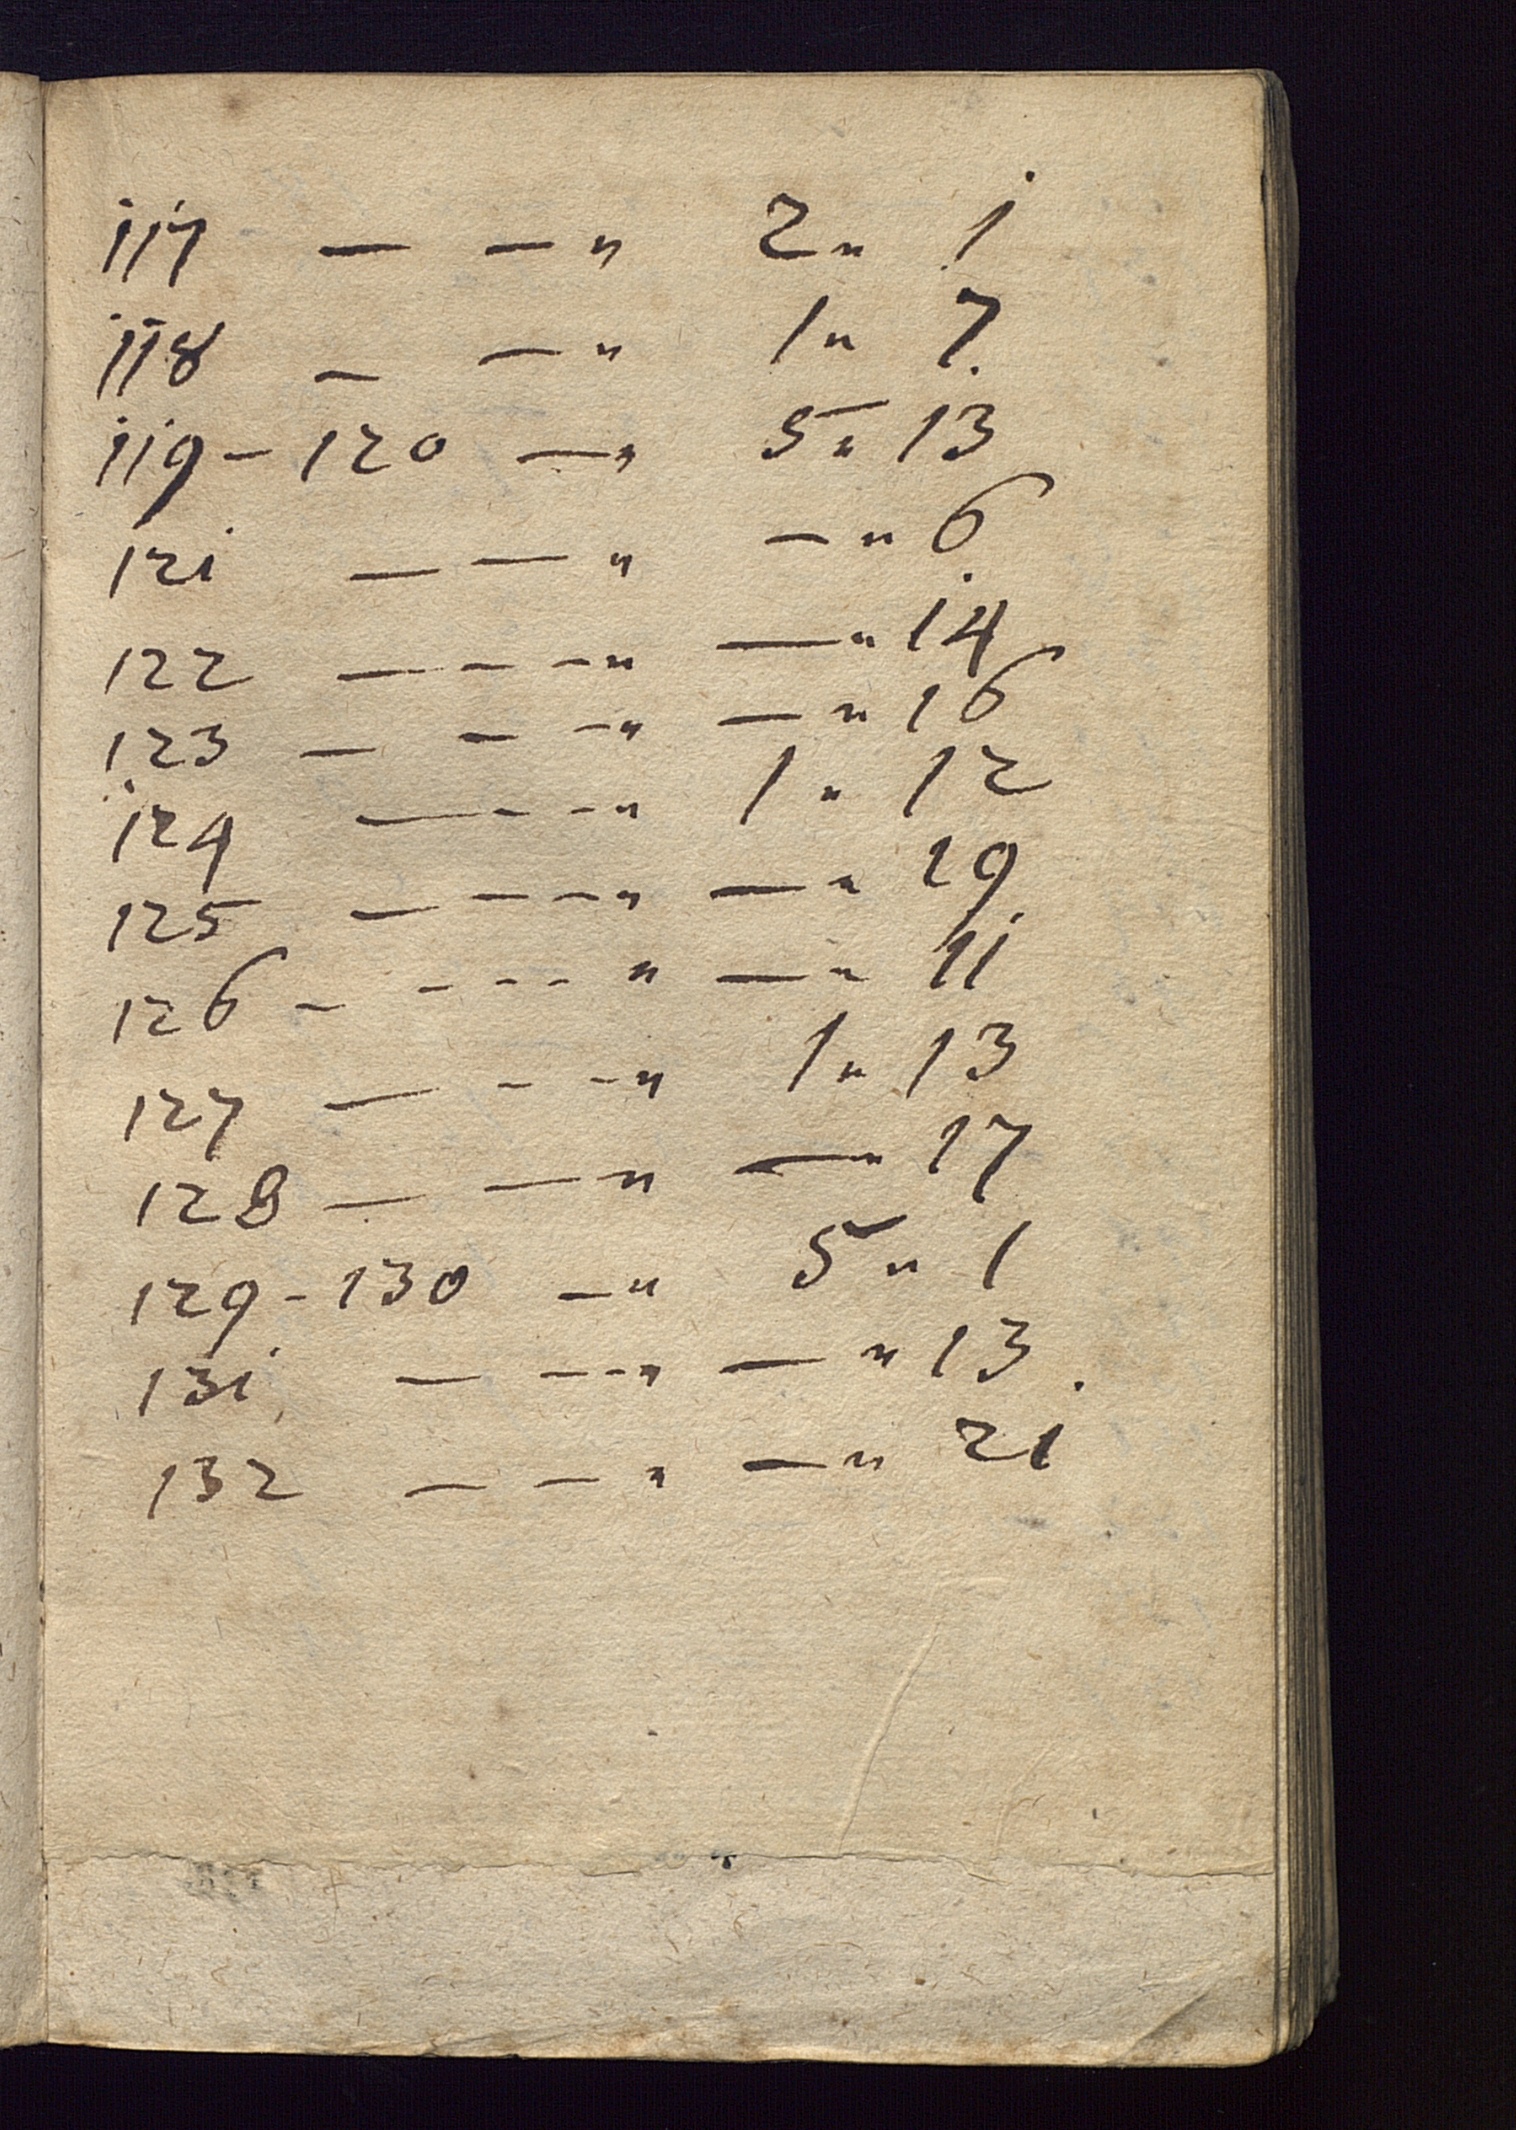 117 — — " 2 " 1
118 — — " 1 " 7
119 - 120 — " 5 " 13
121 — — " — " 6
122 — — — " — " 14
123 — — — " — " 16
124 — — — " 1 " 12
125 — — — — " — " 19
126 — — — — — " — " 11
127 — — — " 1 " 13
128 — — " — " 17
129 - 130 — " 5 " 1
131 — — — — " — " 13
132 — — " — " 21